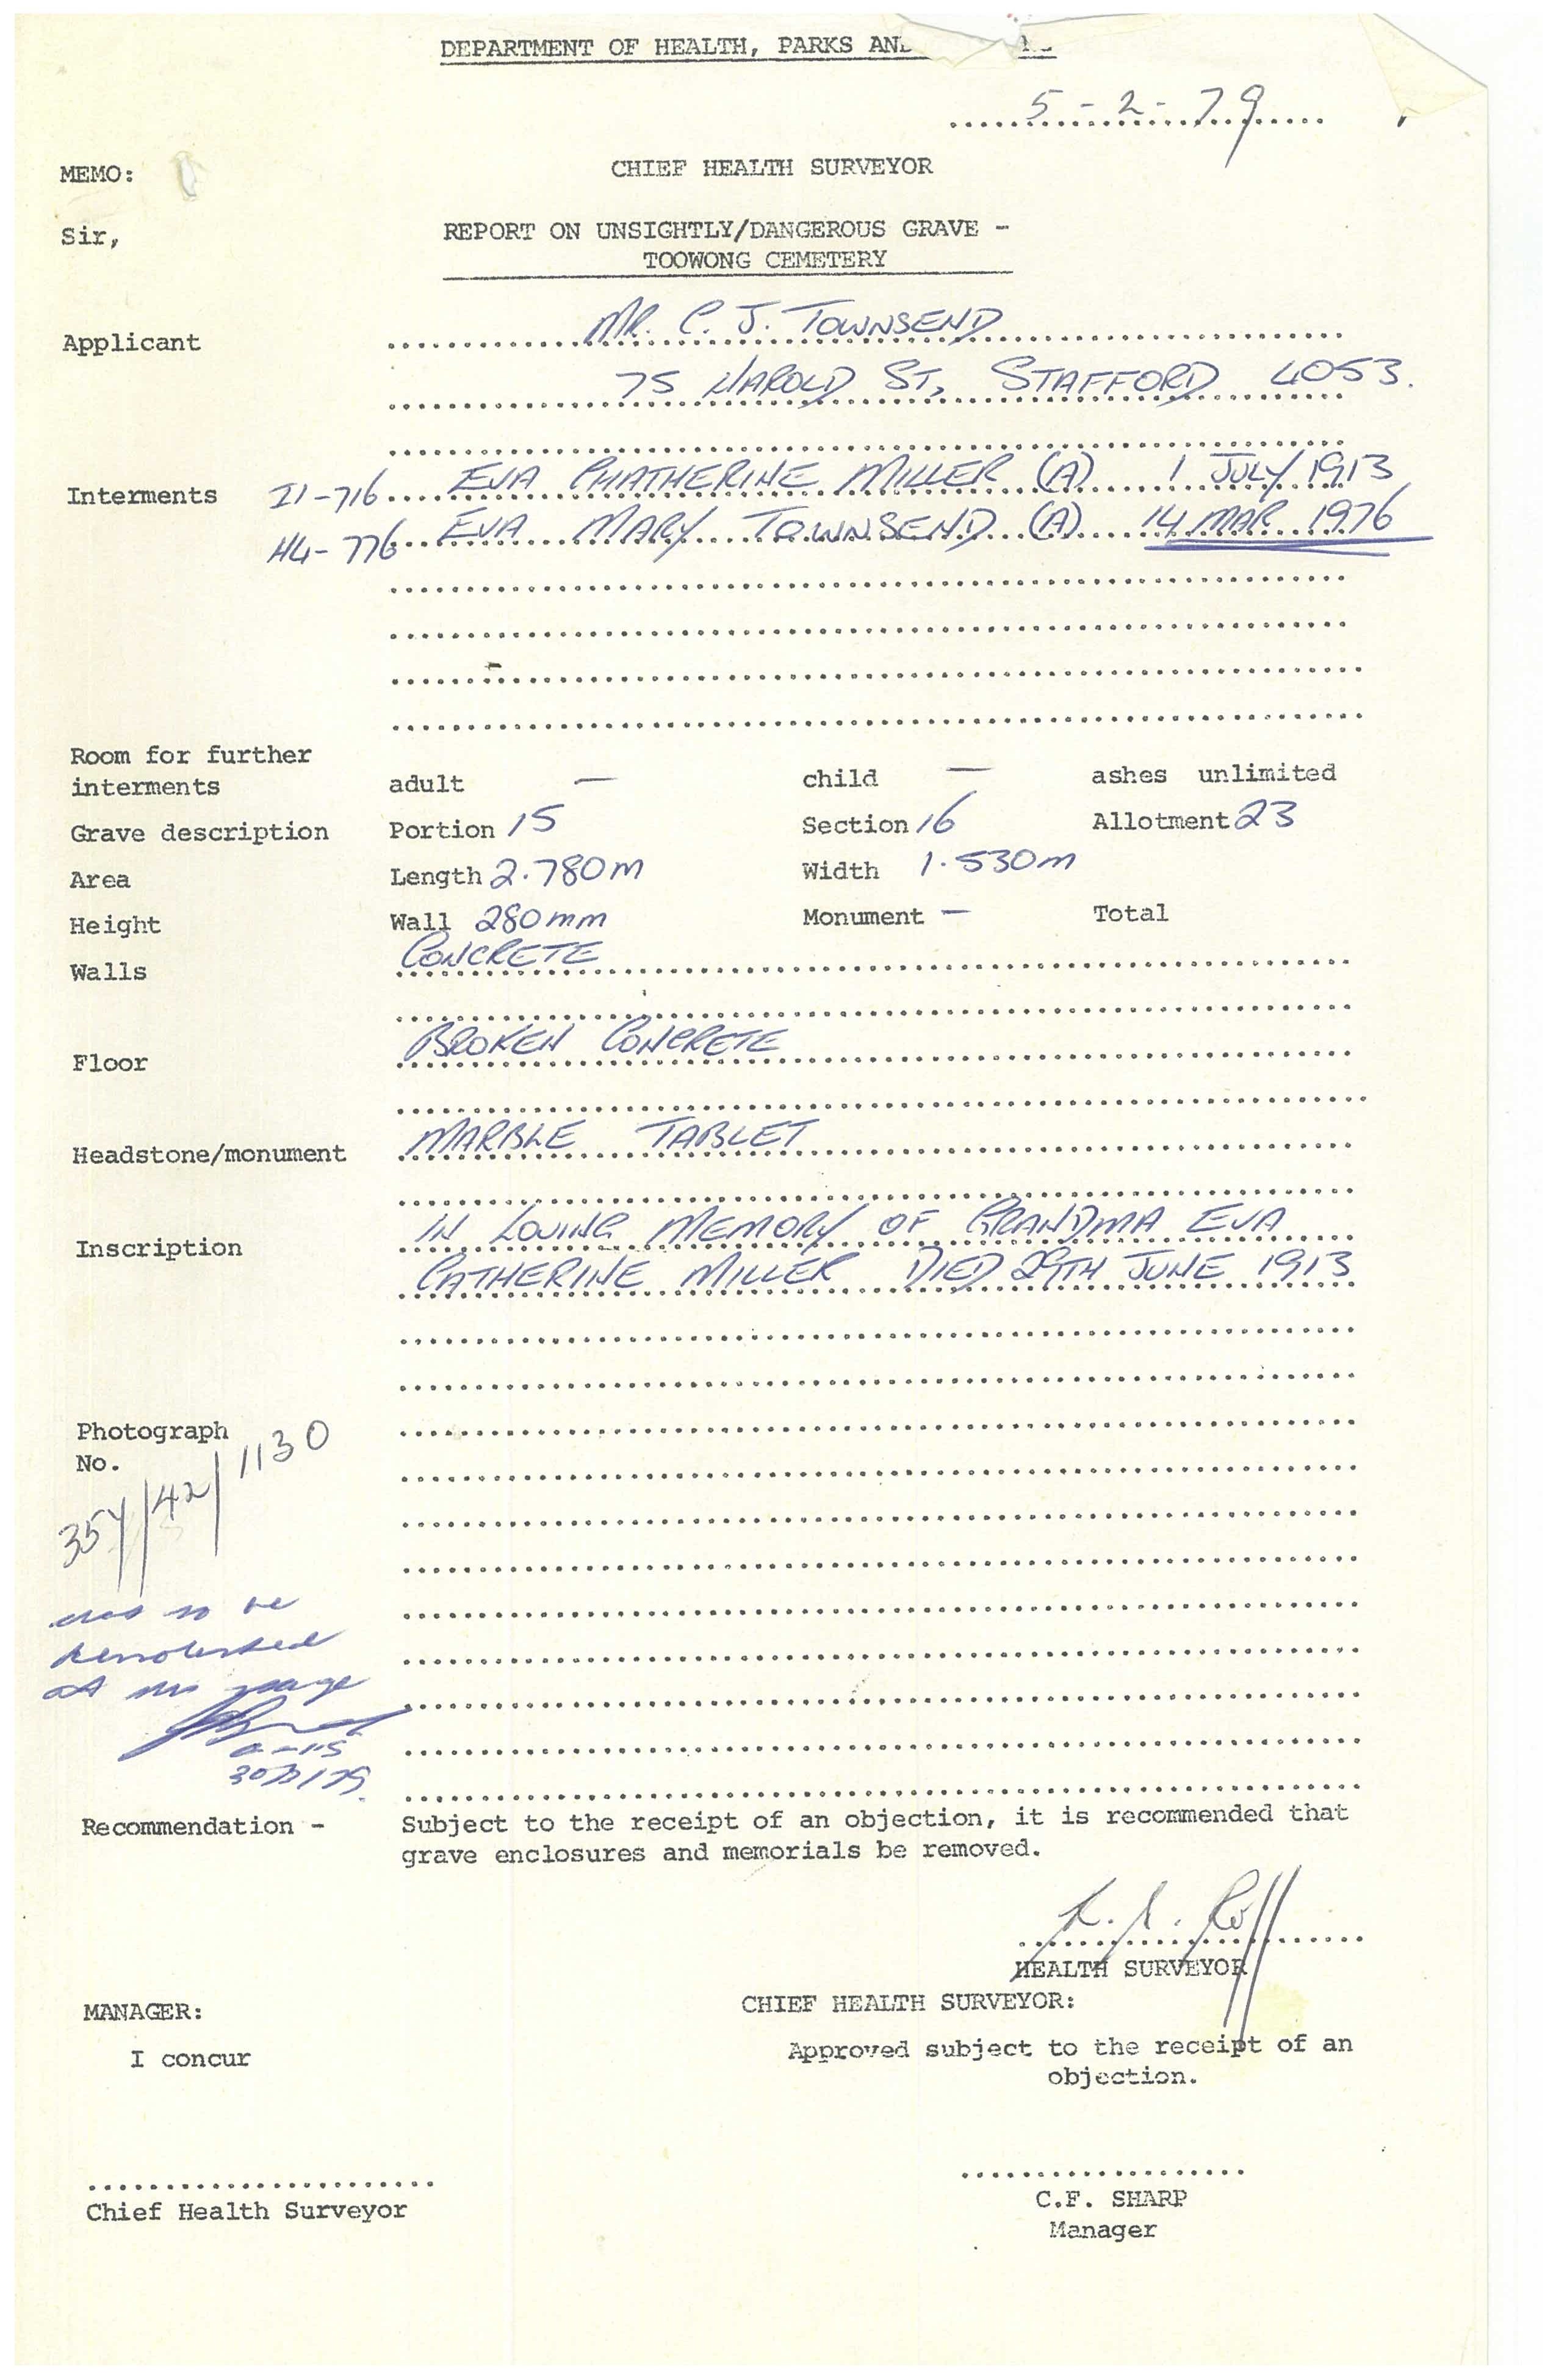 DEPARTMENT OF HEALTH, PARKS AND
5-2-79
MEMO: CHIEF HEALTH SURVEYOR
Sir, REPORT ON UNSIGHTLY/DANGEROUS GRAVE -
TOOWONG CEMETERY
Applicant MR. C. J. TOWNSEND
75 HAROLD ST, STAFFORD 4053.
Interments I1-716 EVA CHATHERINE MILLER (A) 1 JULY 1913
H4-776 EVA MARY TOWNSEND (A) 14 MAR 1976
Room for further
interments adult — child — ashes unlimited
Grave description Portion 15 Section 16 Allotment 23
Area Length 2.780m Width 1.530m
Height Wall 280mm Monument — Total
Walls CONCRETE
Floor BROKEN CONCRETE
Headstone/monument MARBLE TABLET
Inscription IN LOVING MEMORY OF GRANDMA EVA
CATHERINE MILLER DIED 29TH JUNE 1913
Photograph
No.
354/42/1130
to be
demolished
at
Recommendation - Subject to the receipt of an objection, it is recommended that
grave enclosures and memorials be removed.
HEALTH SURVEYOR
MANAGER: CHIEF HEALTH SURVEYOR:
I concur Approved subject to the receipt of an
objection.
Chief Health Surveyor C.F. SHARP
Manager